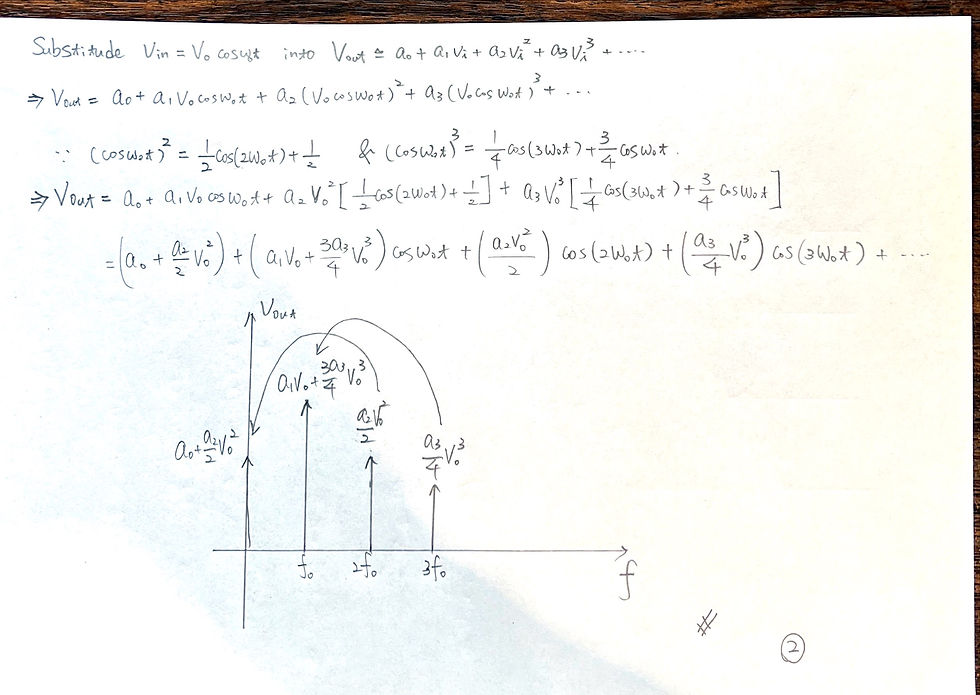 Substitude Vin = V₀ cosω₀t into Vout ≅ a₀ + a₁Vᵢ + a₂Vᵢ² + a₃Vᵢ³ + ....
⇒ Vout = a₀ + a₁V₀cosω₀t + a₂(V₀cosω₀t)² + a₃(V₀cosω₀t)³ + ...
∵ (cosω₀t)² = 1/2 cos(2ω₀t) + 1/2 & (cosω₀t)³ = 1/4 cos(3ω₀t) + 3/4 cosω₀t.
⇒ Vout = a₀ + a₁V₀cosω₀t + a₂V₀² [1/2 cos(2ω₀t) + 1/2] + a₃V₀³ [1/4 cos(3ω₀t) + 3/4 cosω₀t]
= (a₀ + a₂/2 V₀²) + (a₁V₀ + 3a₃/4 V₀³) cosω₀t + (a₂V₀²/2) cos(2ω₀t) + (a₃/4 V₀³) cos(3ω₀t) + ....
Vout
a₁V₀ + 3a₃/4 V₀³
a₂V₀²/2
a₀ + a₂/2 V₀²
a₃/4 V₀³
f₀ 2f₀ 3f₀
f
#
2